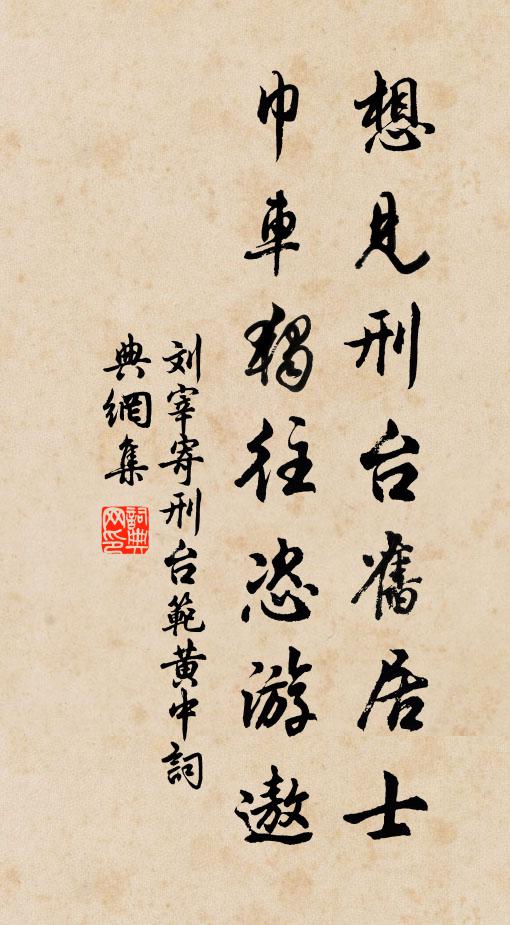 想見刑台舊居士
巾車獨往恣游遨
刘宰寄刑台範黄中詞
典網集
詞典網印